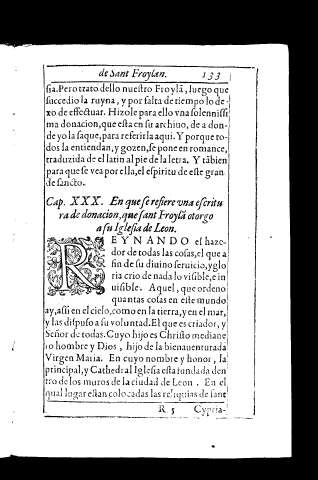 de Sant Froylan. 133
sia. Pero trato dello nuestro Froylã, luego que
succedio la ruyna, y por falta de tiempo lo de-
xo de effectuar. Hizole para ello vna solennissi
ma donacion, que esta en su archiuo, de a don-
de yo la saque, para referirla aqui. Y porque to-
dos la entiendan, y gozen, se pone en romance,
traduzida de el latin al pie de la letra. Y tãbien
para que se vea por ella, el espiritu de este gran
de sancto.
Cap. XXX. En que se refiere vna escritu
ra de donacion, que sant Froylã otorgo
a su Iglesia de Leon.
REYNANDO el haze-
dor de todas las cosas, el que a
fin de su diuino seruicio, y glo
ria crio de nada lo visible, e in
uisible. Aquel, que ordeno
quantas cosas en este mundo
ay, assi en el cielo, como en la tierra, y en el mar,
y las dispuso a su voluntad. El que es criador, y
Señor de todas. Cuyo hijo es Christo mediane
ro hombre y Dios, hijo de la bienauenturada
Virgen Maria. En cuyo nombre y honor, la
principal, y Cathedral Iglesia esta fundada den
tro de los muros de la ciudad de Leon. En el
qual lugar estan colocadas las reliquias de sant
R 5 Cypria-